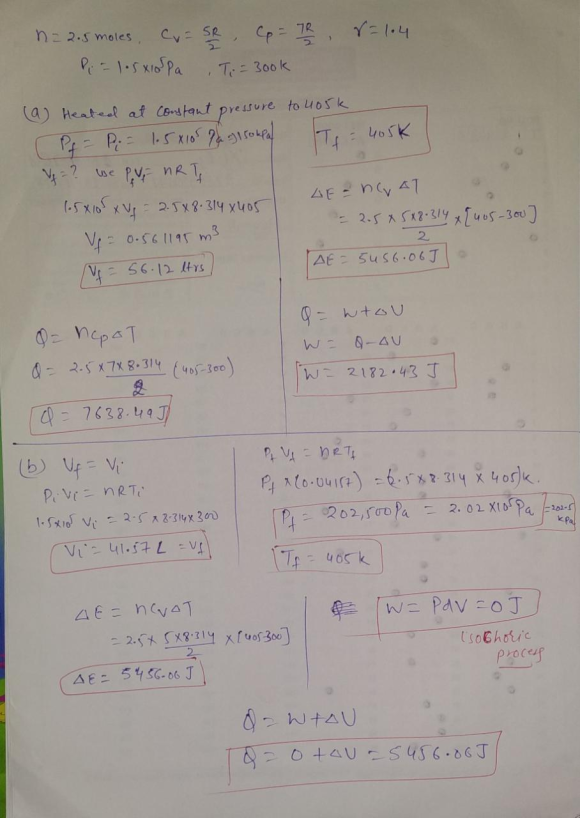 n = 2.5 moles, Cv = 5R/2, Cp = 7R/2, γ = 1.4
Pi = 1.5×10⁵Pa, Ti = 300k
(a) Heated at constant pressure to 405k
Pf = Pi = 1.5×10⁵ Pa
Vf = ? use PfVf = nRTf
1.5×10⁵ × Vf = 2.5×8.314×405
Vf = 0.561195 m³
Vf = 56.12 ltrs
Q = nCpΔT
Q = 2.5×7×8.314/2 (405-300)
Q = 7638.49 J
Tf = 405K
ΔE = nCvΔT
= 2.5×5×8.314/2 ×[405-300]
ΔE = 5456.06J
Q = W+ΔU
W = Q-ΔU
W = 2182.43 J
(b) Vf = Vi
PiVi = nRTi
1.5×10⁵ Vi = 2.5×8.314×300
Vi = 41.57 L = Vf
Pf Vf = nRTf
Pf ×(0.04157) = (2.5×8.314×405)k.
Pf = 202,500Pa = 2.02×10⁵Pa = 202.5 kPa
Tf = 405k
ΔE = nCvΔT
= 2.5× 5×8.314/2 ×[405-300]
ΔE = 5456.06 J
W = PdV = 0 J
isochoric
process
Q = W+ΔU
Q = 0+ΔU = 5456.06J